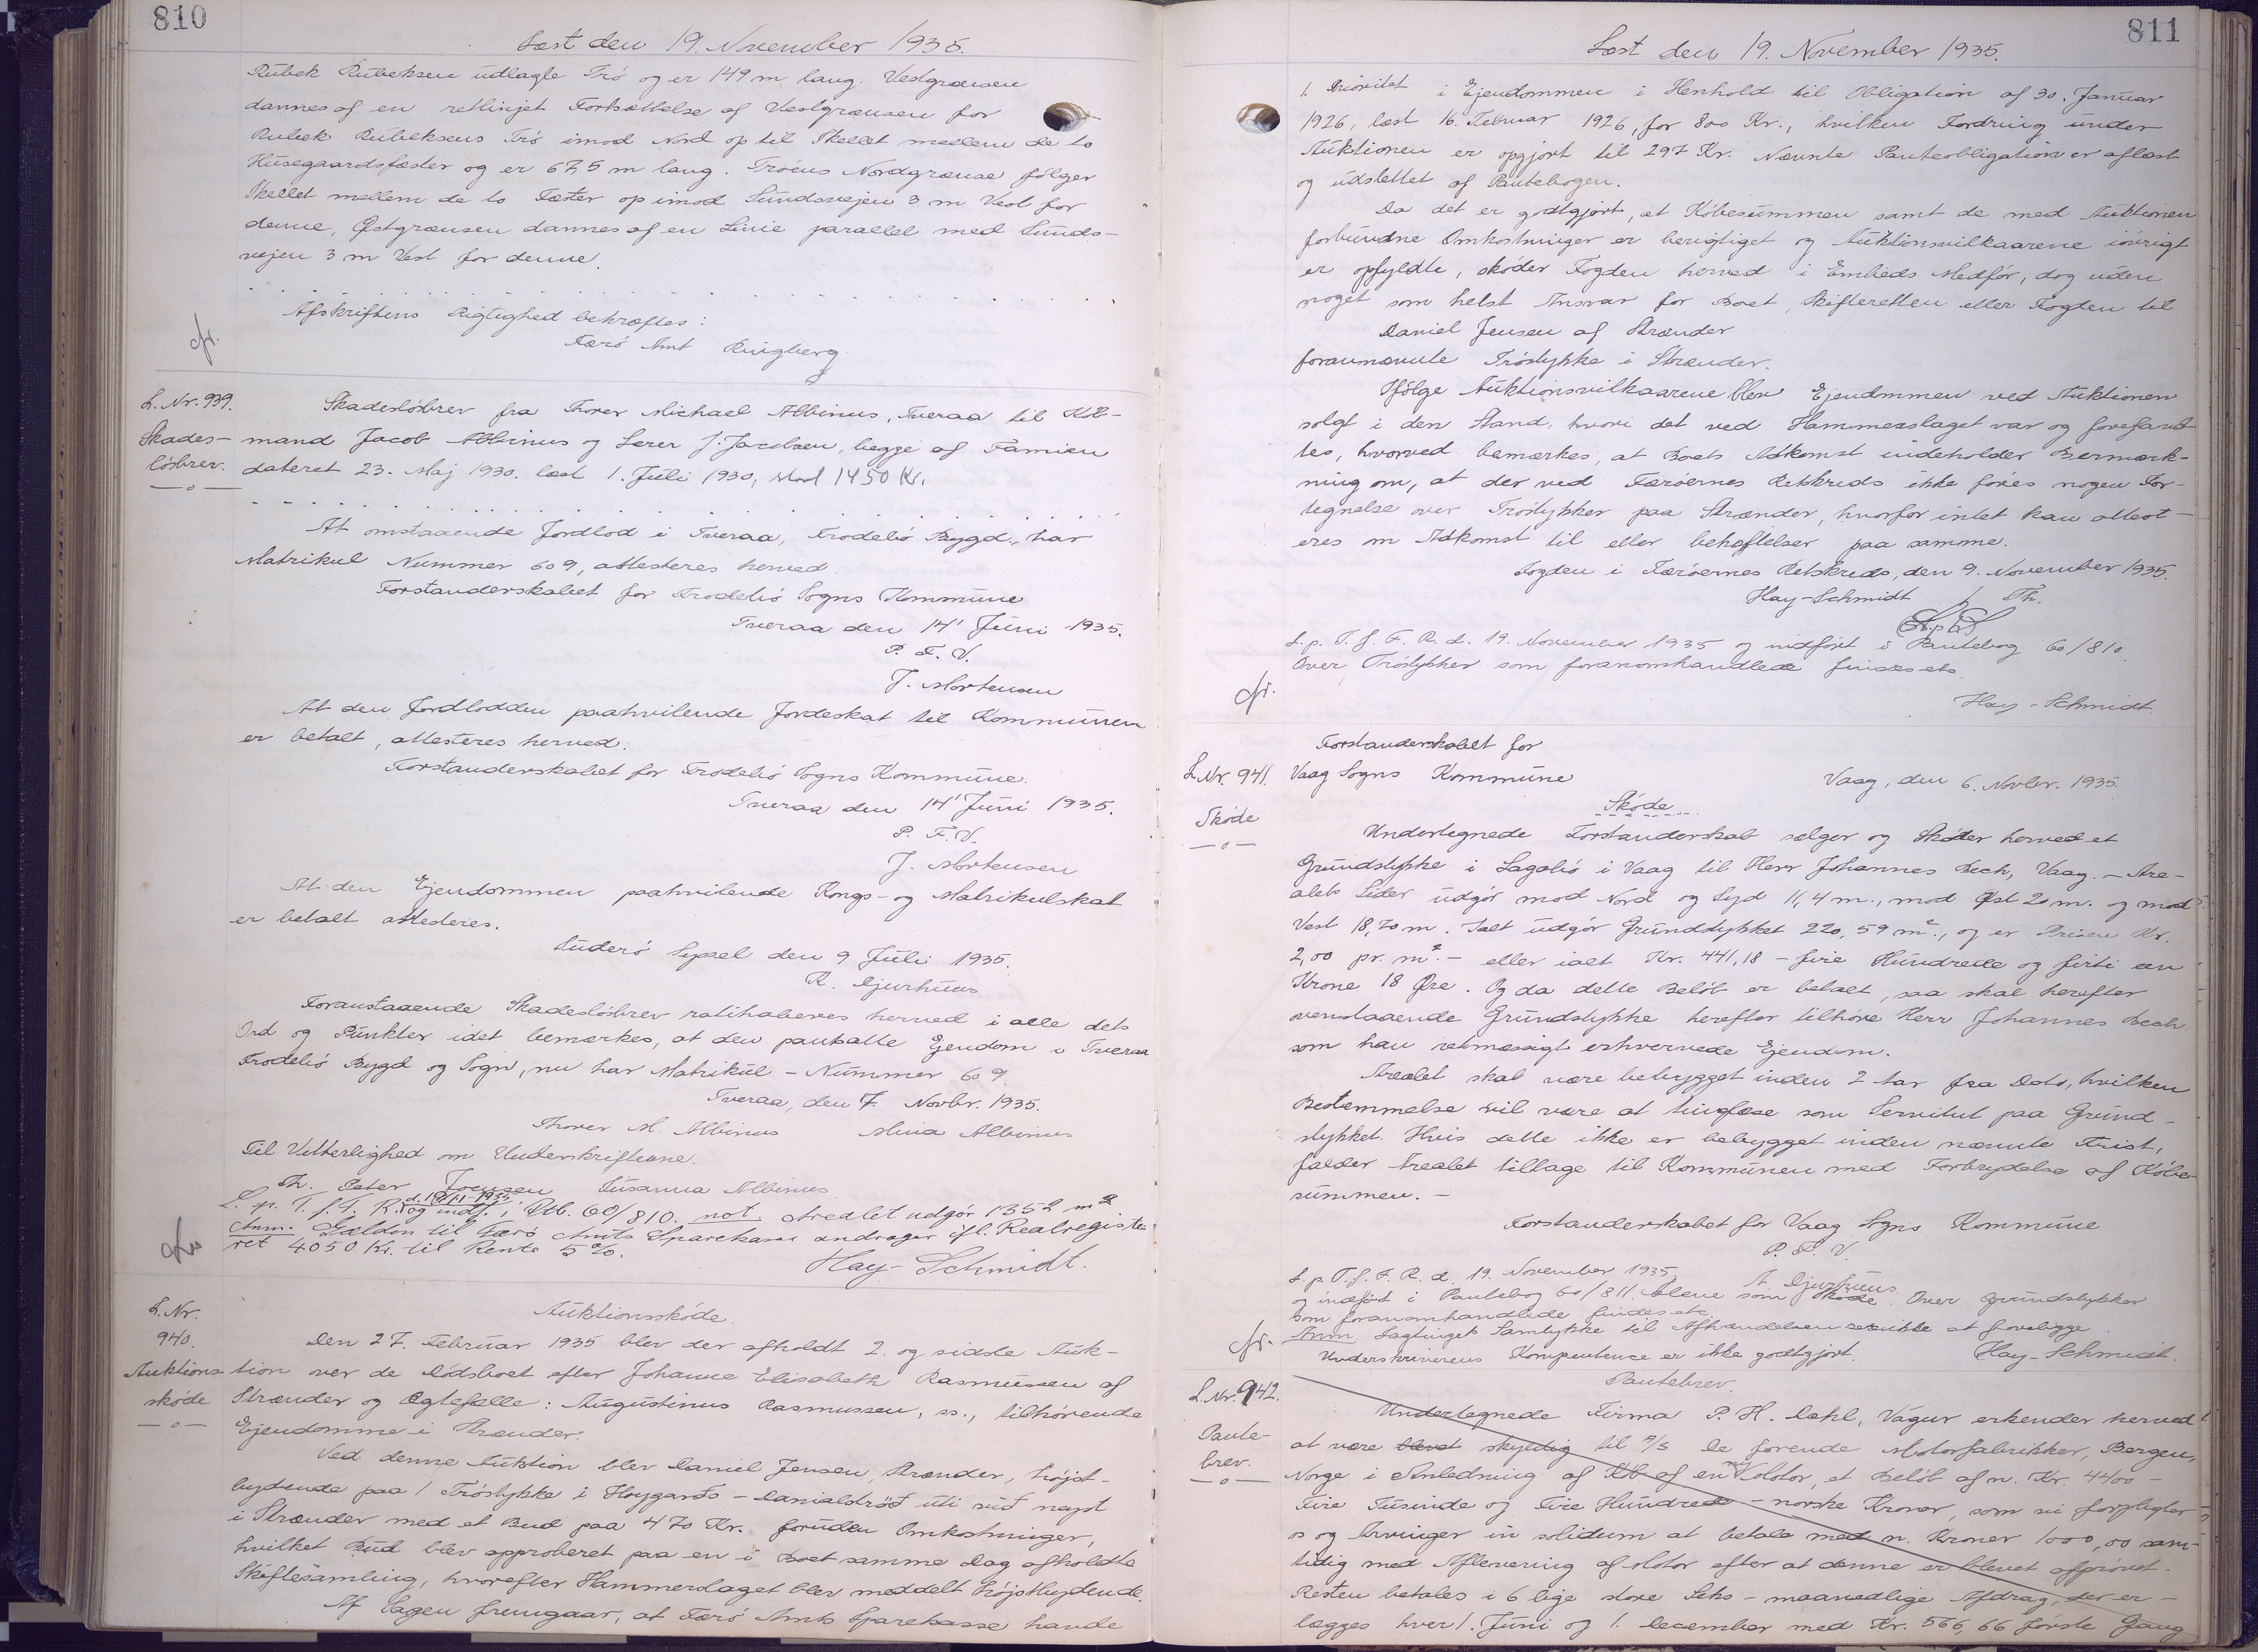 810
Læst den 19. November 1935.
Rubek Rubeksen udlagte Trö og er 149 m lang. Vestgrænsen
dannes af en retlinjet Fortsættelse af Vestgrænsen for
Rubek Rubeksens Trö imod Nord op til Skellet mellem de to
Husegaardsfæster og er 67,5 m lang. Tröens Nordgrænse følger
Skellet mellem de to Fæster op imod Sundsvejen 3 m Vest for
denne, Østgrænsen dannes af en Linie parallel med Sunds-
vejen 3 m Vest for denne.
Afskriftens Rigtighed bekræftes:
Færö Amt Ringberg
cfr.
L. Nr. 939.
Skades-
lösbrev.
Skadeslösbrev fra Thorer Michael Albinus, Tveraa til Köb-
mand Jacob Albinus og Lærer J. Jacobsen, begge af Famien
dateret 23. Maj 1930. læst 1. Juli 1930, stort 1450 Kr.
At omstaaende Jordlod i Tveraa, Frodebö Bygd, har
Matrikul Nummer 609, attesteres herved.
Forstanderskabet for Frodebö Sogns Kommune
Tveraa den 14' Juni 1935.
P. F. V.
J. Mortensen
At den Jordlodden paahvilende Jordeskat til Kommunen
er betalt, attesteres herved.
Forstanderskabet for Frodebö Sogns Kommune.
Tveraa den 14' Juni 1935.
P. F. V.
J. Mortensen
At den Ejendommen paahvilende Kongs- og Matrikulskat
er betalt attesteres.
Suderö Syssel den 9 Juli 1935.
R. Djurhuus
Foranstaaende Skadeslösbrev ratihaberes herved i alle dets
Ord og Punkter idet bemærkes, at den pantsatte Ejendom i Tveraa
Frodebö Bygd og Sogn, nu har Matrikul-Nummer 609.
Tveraa, den 7. Novbr. 1935.
Thorer M. Albinus Mina Albinus
Til Vitterlighed om Underskrifterne.
Th. Peter Joensen Susanna Albinus
L. p. T. f. F. R. d. 19/11-1935 og indf. i Ptb. 60/810. not. Arealet udgör 1352 m2
Anm. Gælden til Færö Amts Sparekasse andrager ifl. Realregiste-
ret 4050 Kr. til Rente 5%.
Hay-Schmidt.
cfr.
L. Nr.
940.
Auktions-
sköde
Auktionssköde.
Den 27. Februar 1935 blev der afholdt 2. og sidste Auk-
tion over de Dödsboet efter Johanne Elisabeth Rasmussen af
Strænder og Ægtefælle: Augustinus Rasmussen, ss., tilhörende
Ejendomme i Strænder.
Ved denne Auktion blev Daniel Jensen, Strænder, höjst-
bydende paa 1 Tröstykke i Hoygards-Danialströð uti við nagst
i Strænder med et Bud paa 470 Kr. foruden Omkostninger,
hvilket Bud blev approberet paa en i Boet samme Dag afholdte
Skiftesamling, hvorefter Hammerslaget blev meddelt Höjstbydende.
Af Sagen fremgaar, at Færö Amts Sparekasse havde
811
Læst den 19. November 1935.
1. Prioritet i Ejendommen i Henhold til Obligation af 30. Januar
1926, læst 16. Februar 1926, for 800 Kr., hvilken Fordring under
Auktionen er opgjort til 297 Kr. Nævnte Panteobligation er aflæst
og udslettet af Pantebogen.
Da det er godtgjort, at Köbesummen samt de med Auktionen
forbundne Omkostninger er berigtiget og Auktionsvilkaarene iövrigt
er opfyldte, sköder Fogden herved i Embeds Medför, dog uden
noget som helst Ansvar for Boet, Skifteretten eller Fogden til
Daniel Jensen af Strænder
forannævnte Tröstykke i Strænder.
Ifölge Auktionsvilkaarene blev Ejendommen ved Auktionen
solgt i den Stand, hvori det ved Hammerslaget var og forefand-
tes, hvorved bemærkes, at Boets Adkomst indeholder Bermærk-
ning om, at der ved Færöernes Retskreds ikke föres nogen For-
tegnelse over Tröstykker paa Strænder, hvorfor intet kan attest-
eres om Adkomst til eller behæftelser paa samme.
Fogden i Færöernes Retskreds, den 9. November 1935.
Hay-Schmidt / Th.
L. p. T. f. F. R. d. 19. November 1935 og indfört i Pantebog 60/810.
Over Tröstykker som foranomhandlede findes etc.
Hay-Schmidt
cfr.
L. Nr. 941.
Sköde
Forstanderskabet for
Vaag Sogns Kommune
Vaag, den 6. Novbr. 1935.
Sköde
Undertegnede Forstanderskab sælger og Sköder herved et
Grundstykke i Lagabö i Vaag til Herr Johannes Bech, Vaag. - Are-
alets Sider udgör mod Nord og Syd 11,4 m., mod Øst 20 m. og mod
Vest 18,70 m. Ialt udgör Grundstykket 220,59 m2., og er Prisen Kr.
2,00 pr. m2. - eller ialt Kr. 441,18 - fire Hundrede og firti een
Krone 18 Øre. Og da dette Belöb er betalt, saa skal herefter
ovenstaaende Grundstykke herefter tilhöre Herr Johannes Bech
som han retmæssigt erhvervede Ejendom.
Arealet skal være bebygget inden 2 Aar fra Dato, hvilken
Bestemmelse vil være at tinglæse som Servitut paa Grund-
stykket. Hvis dette ikke er bebygget inden nævnte Frist,
falder Arealet tilbage til Kommunen med Forbrydelse af Köbe-
summen. -
Forstanderskabet for Vaag Sogns Kommune
P. F. V.
A Djurhuus
L. p. T. f. F. R. d. 19. November 1935
og indfört i Pantebog 60/811. Alene som Sköde. Over Grundstykker
som foranomhandlede findes etc.
Anm. Lagtinget Samtykke til Afhændelsen ses ikke at foreligge.
Underskriverens Kompentence er ikke godtgjort.
Hay-Schmidt.
cfr.
L. Nr. 942.
Pante-
brev.
Pantebrev.
Undertegnede Firma P. H. Dahl, Vágur erkender herved
at være blevet skyldig til A/S De forende Motorfabrikker, Bergen,
Norge i Anledning af Köb af en Motor, et Belöb af n. Kr. 4400 -
Fire Tusinde og Fire Hundrede - norske Kroner, som vi forpligter
os og Arvinger in solidum at betale med n. Kroner 1000,00 sam-
tidig med Aflevering af Motor efter at denne er blevet afprövet.
Resten betales i 6 lige store Seks-maanedlige Afdrag, der er-
lægges hver 1. Juni og 1. December med Kr. 566,66 förste Gang